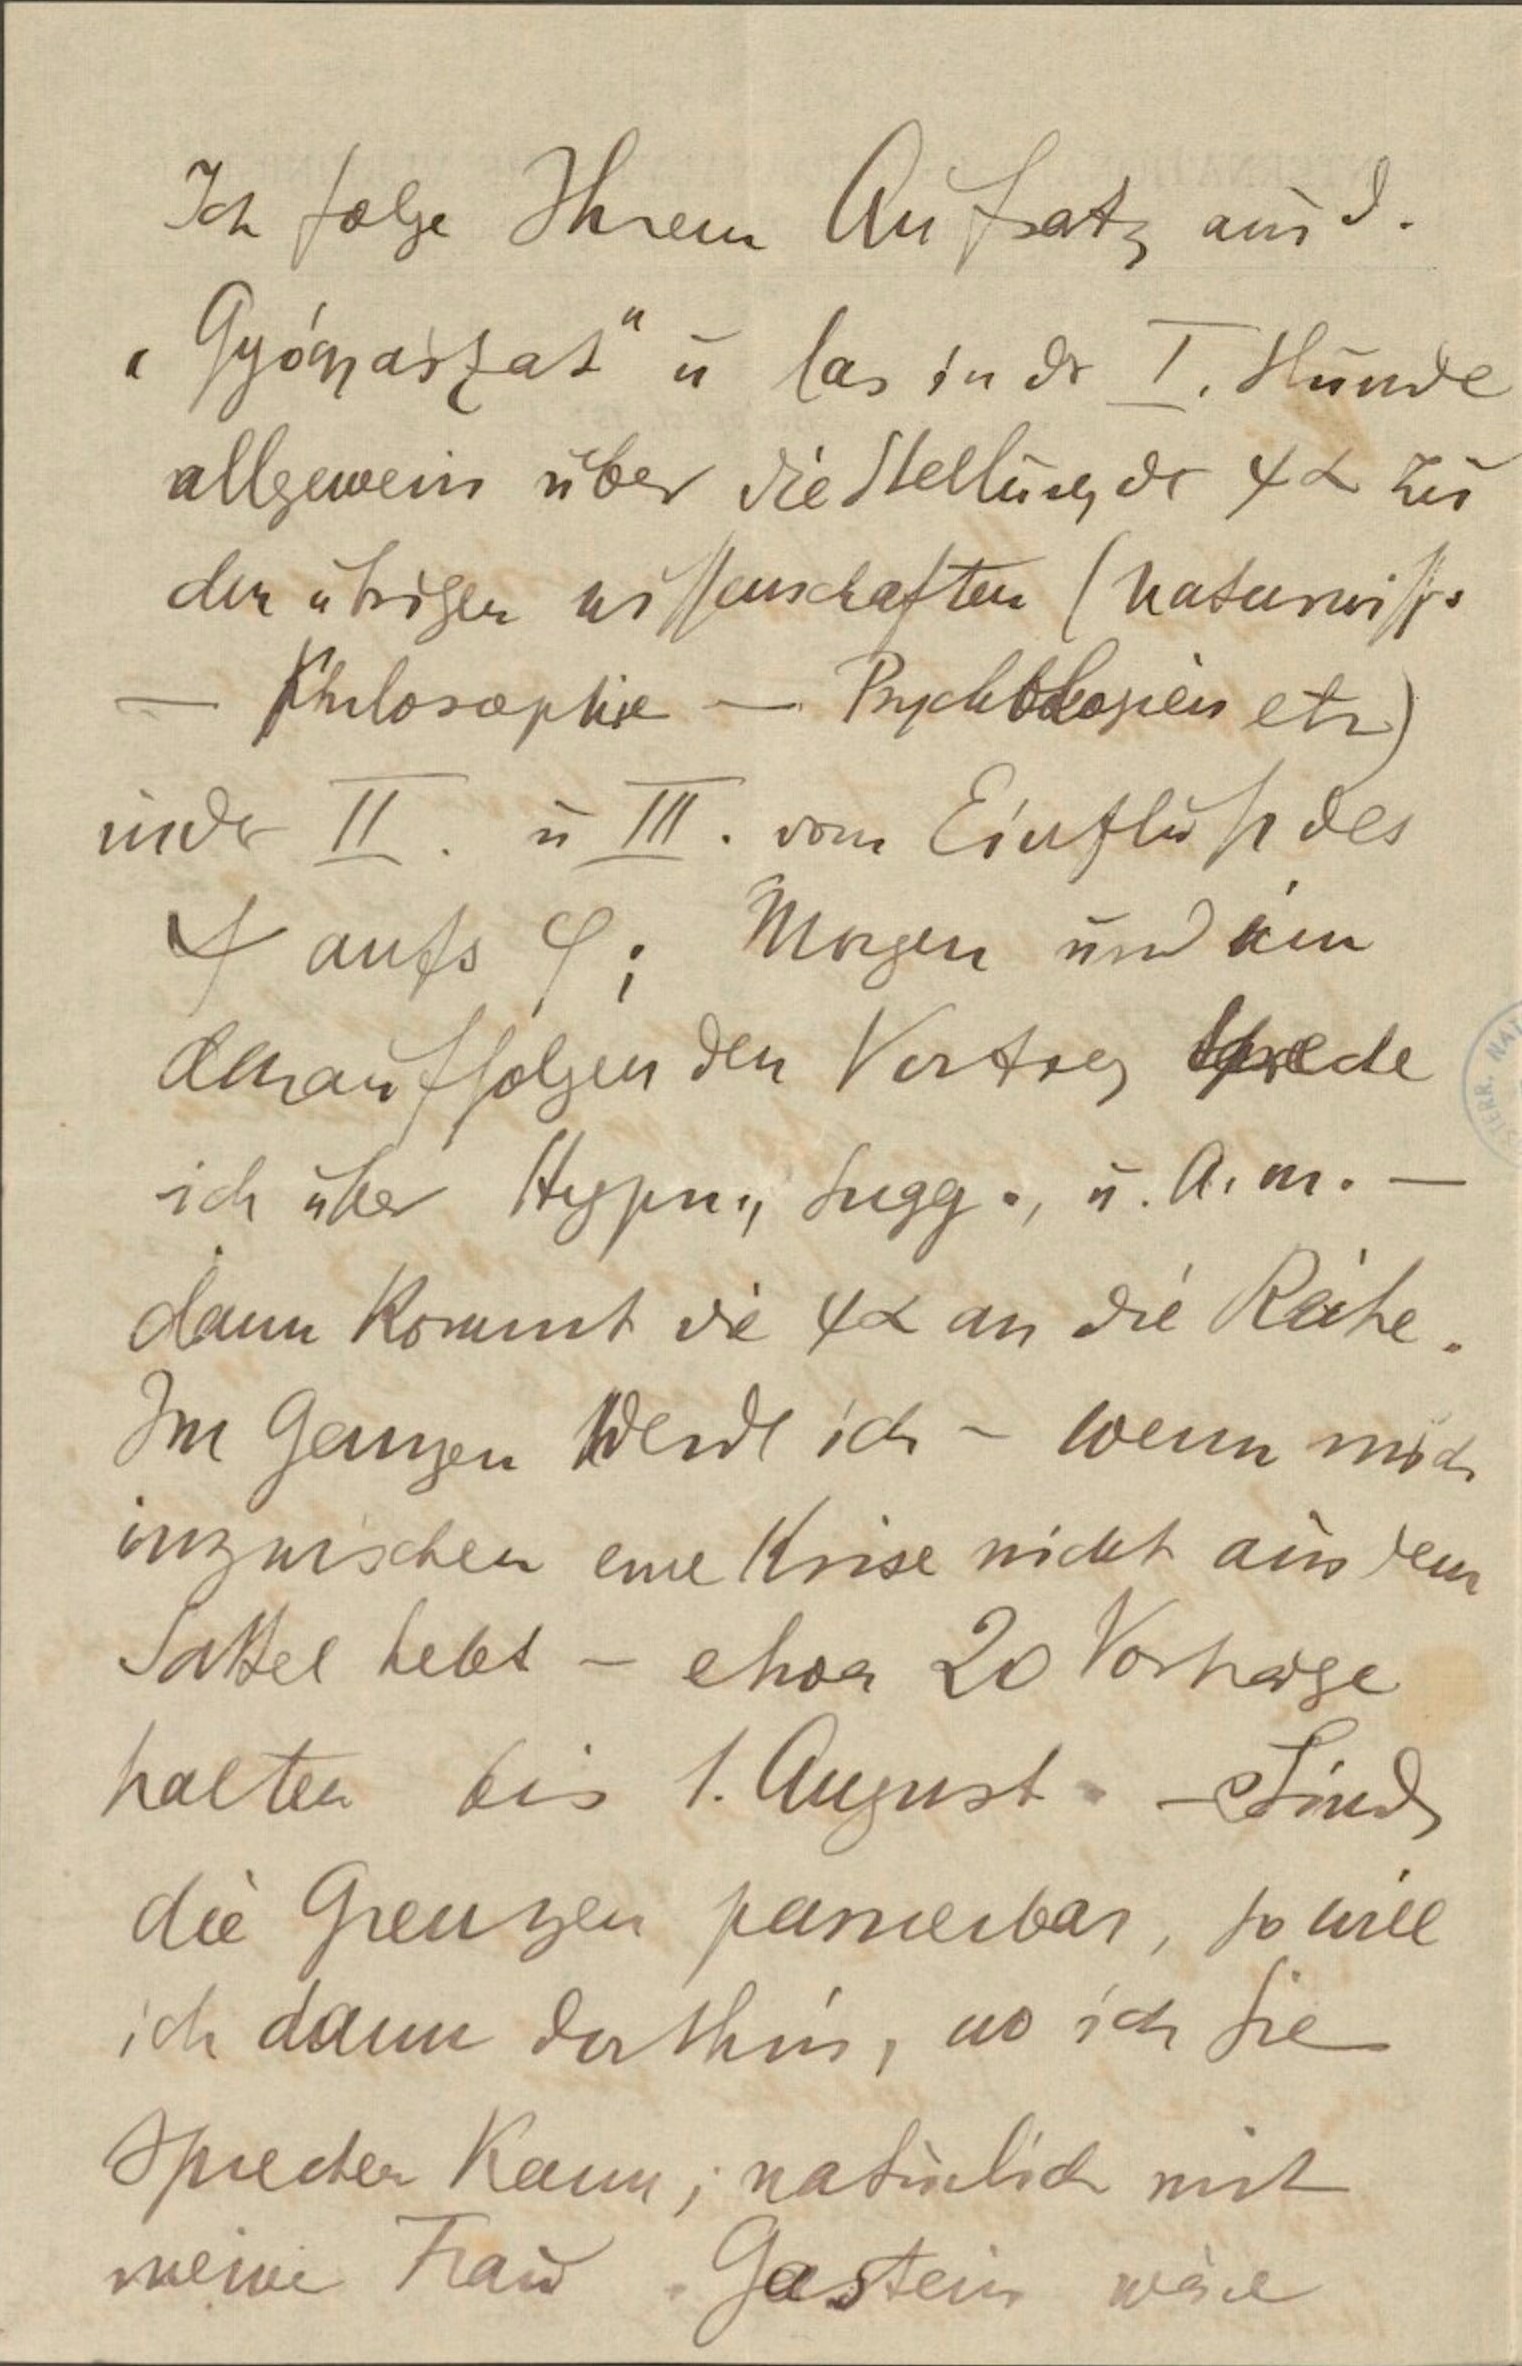 Ich folge Ihrem Aufsatz aus d.
„Gyógyászat“ u las in dr I. Stunde
allgemein über die Stellung dr ψα zu
den übrigen wissenschaften (Naturwiss.
— Philosophie — Psychologien etz)
in der II. u III. vom Einfluß des
ψ aufs φ; Morgen und im
darauffolgenden Vortrag spreche
ich über Hypn., Sugg., u. A. m. —
dann kommt die ψα an die Reihe.
Im Ganzen werde ich – wenn mich
inzwischen eine Krise nicht aus dem
Sattel hebt – etwa 20 Vorträge
halten bis 1. August. – Sind
die Grenzen passierbar, so will
ich dann dorthin, wo ich Sie
sprechen kann; natürlich mit
meiner Frau. Gastein wäre
STERR. NAT